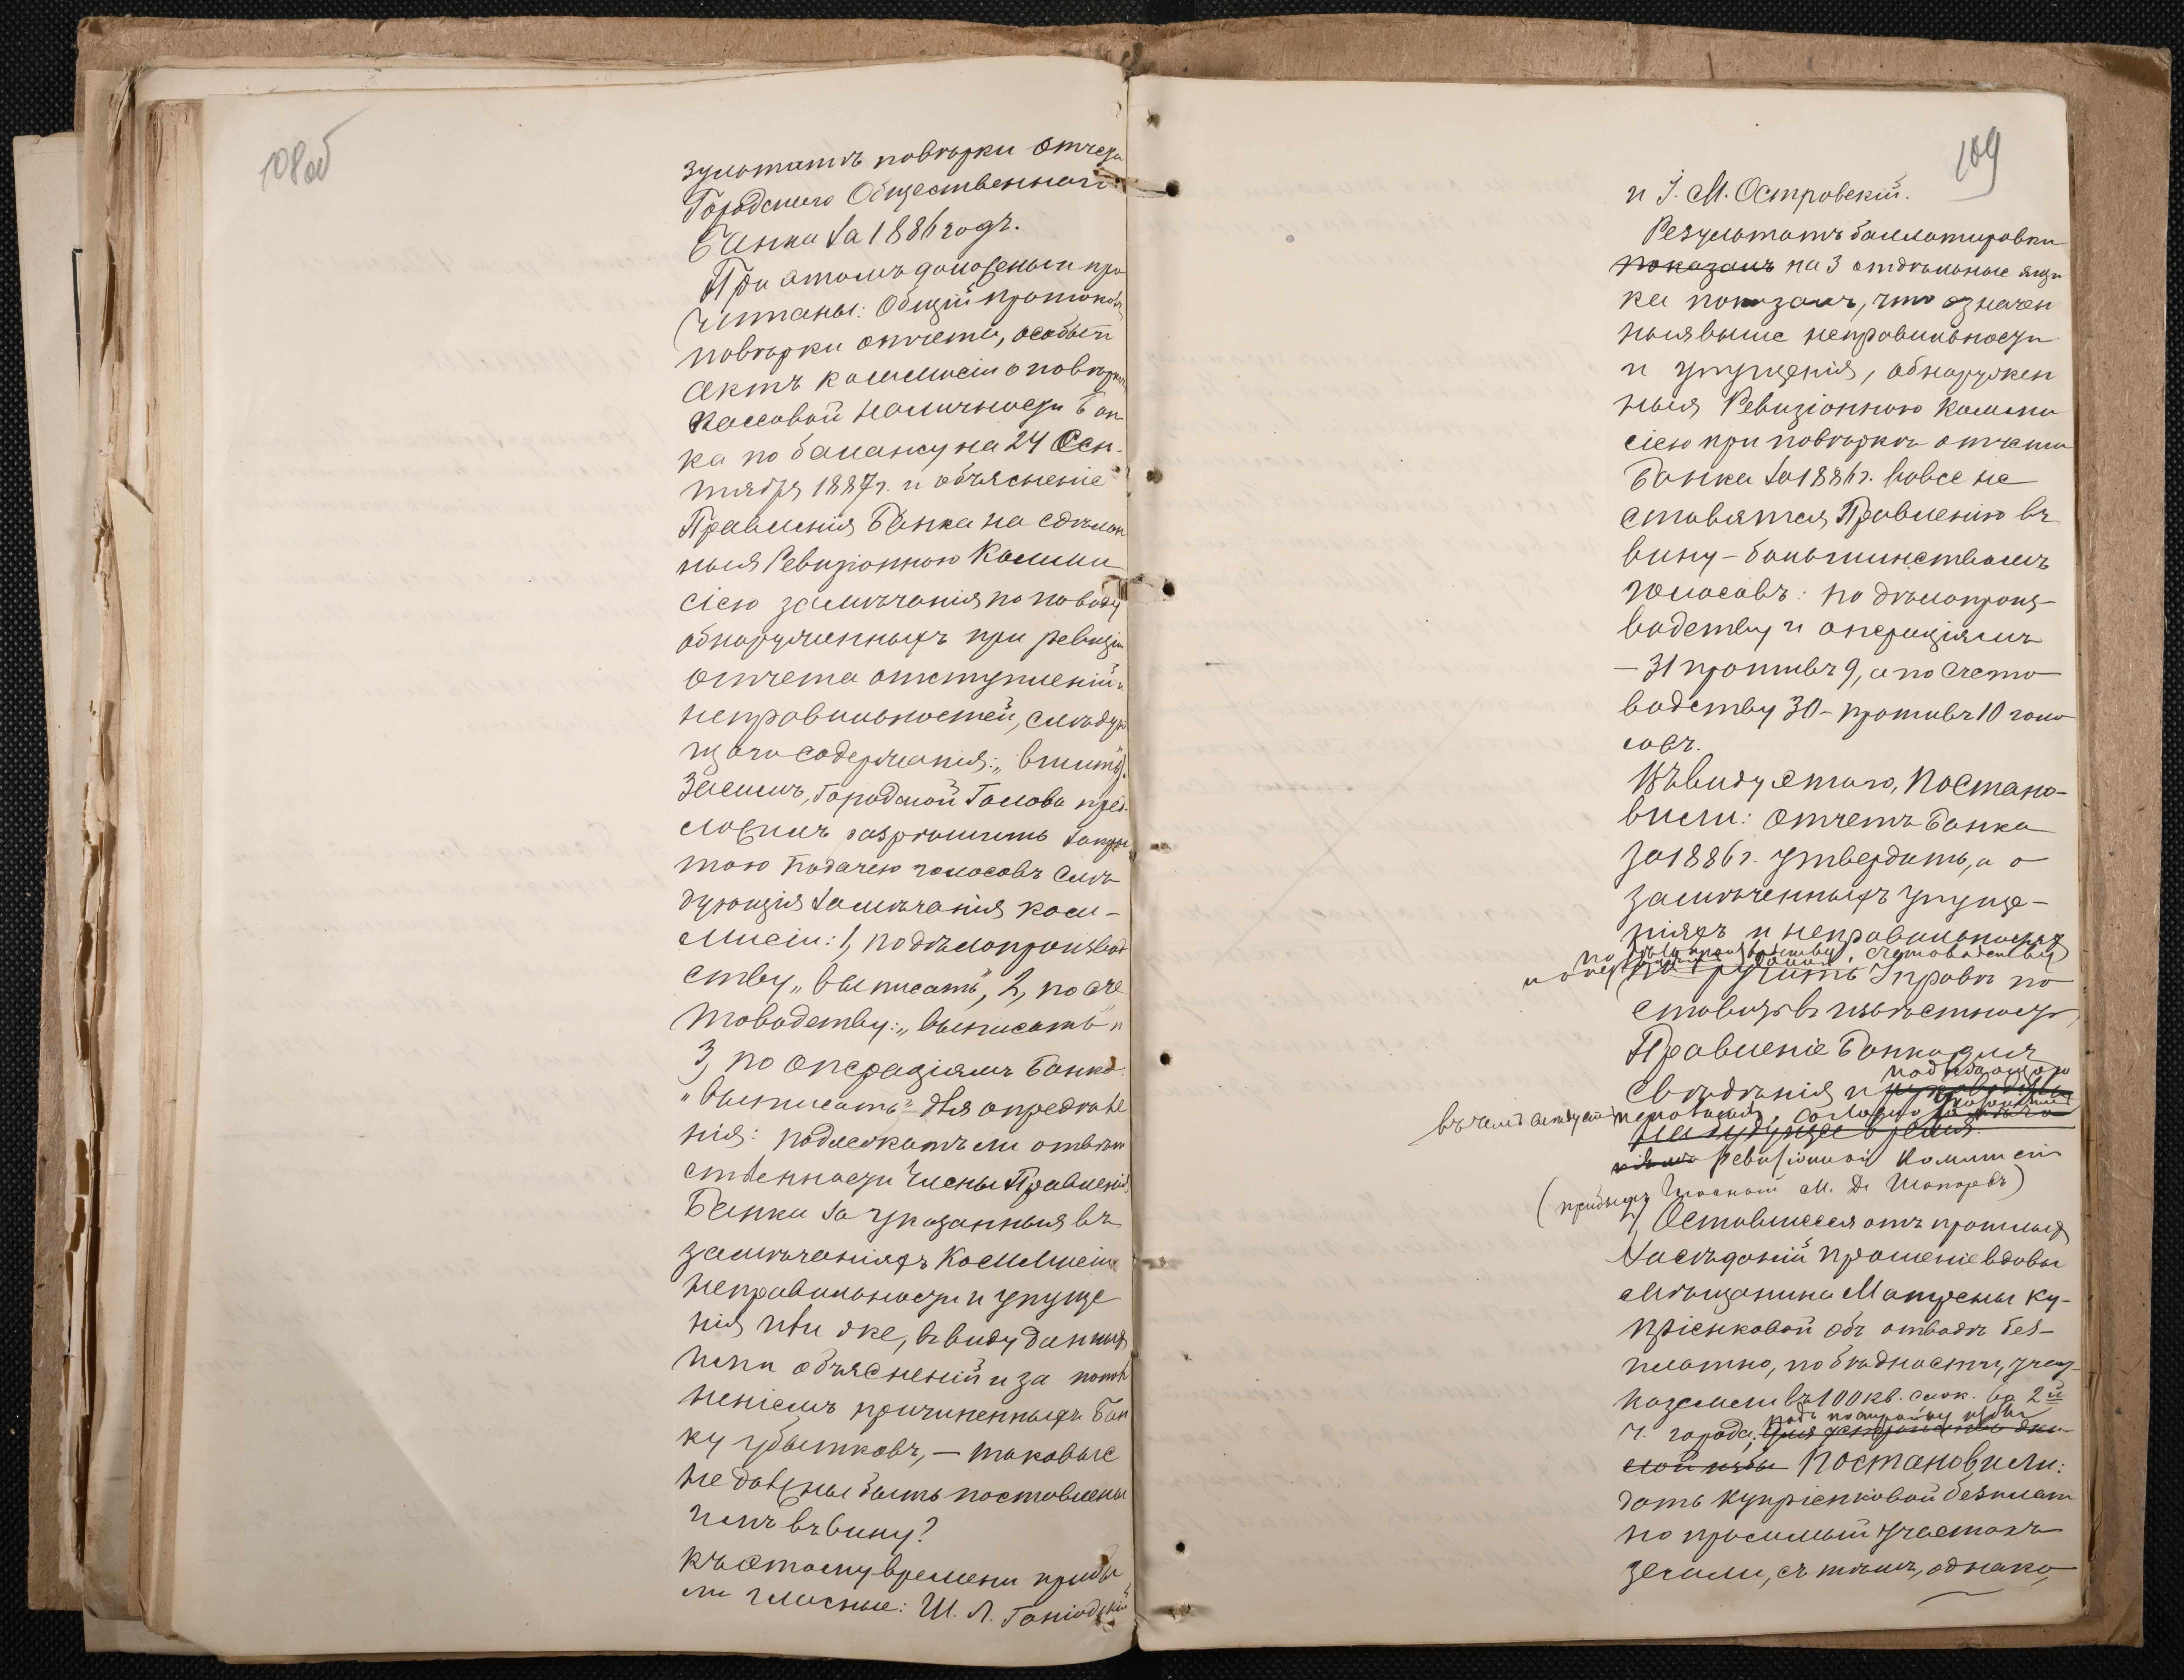 108об
зультатъ повѣрки отчета
Городскаго Общественнаго
Банка за 1886 годъ.
При этомъ доложены и про
читаны: Общій протоколъ
повѣрки отчета, особый
актъ коммисіи о повѣркѣ
кассовой наличности Бан
ка по балансу на 24 Сен-
тября 1887 г. и объясненіе
Правленія Банка на сдѣлан
ныя Ревизіонною Комми
сіею замѣчанія по поводу
обнаруженныхъ при ревизіи
отчета отступленій и
неправильностей, слѣдую
щаго содержанія: „вшить“.
Засимъ, Городской Голова пред-
ложилъ разрѣшить закры
тою подачею голосовъ слѣ
дующія замѣчанія ком-
мисіи: 1, по дѣлопроизвод
ству „выписать“, 2, по сче
товодству: „выписать“ и
3, по операціямъ Банка
„выписать“ для опредѣле
нія: подлежатъ ли отвѣт
ственности Члены Правленія
Банка за указанныя въ
замѣчаніяхъ Коммисіи
неправильности и упуще
нія или же, въ виду данныхъ
ими объясненій и за попол
неніемъ причиненныхъ Бан
ку убытковъ, — таковые
не должны быть поставлены
имъ въ вину?
Къ этому времени прибы
ли гласные: Ш. Л. Ганіодскій
109
и І. М. Островскій.
Результатъ баллотировки
показалъ на 3 отдѣльные ящи
ка показалъ, что означен
ныя выше неправильности
и упущенія, обнаружен
ныя Ревизіонною Комми
сіею при повѣркѣ отчета
Банка за 1886 г. вовсе не
ставятся Правленію въ
вину – большинствомъ
голосовъ: по дѣлопроиз-
водству и операціямъ
— 31 противъ 9, а по счето
водству 30 – противъ 10 голо
совъ.
Въ виду этого, Постано-
вили: отчетъ Банка
за 1886 г. утвердить, а о
замѣченныхъ упуще-
ніяхъ и неправильностяхъ
по дѣлопроизводству, счетоводству
и операціямъ
поручить Управѣ по
ставить въ извѣстность
Правленіе Банка для
свѣдѣнія и
надлежащаго
въ чемъ слѣдуетъ исполненія, согласно указаній
на будущее время.
Ревизіонной Коммисіи
(прибылъ Гласный М. Д. Шапоревъ)
Оставшееся отъ прошлыхъ
засѣданій прошеніе вдовы
мѣщанина Матрены Ку-
пріенковой объ отводѣ без-
платно, по бѣдности, участ-
ка земли въ 100 кв. саж. во 2й
подъ постройку избы
ч. города,
Постановили:
дать Купріенковой безплат
но просимый участокъ
земли, съ тѣмъ, однако,